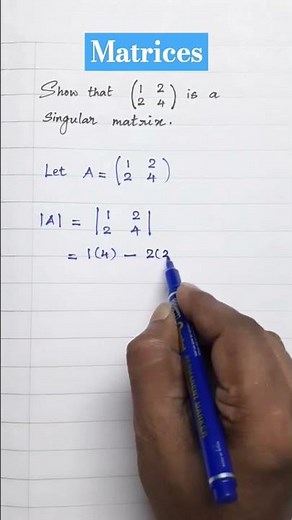 Matrices
Show that (1 2
2 4) is a
Singular matrix.
Let A = (1 2
2 4)
|A| = |1 2
2 4|
= 1(4) – 2(2